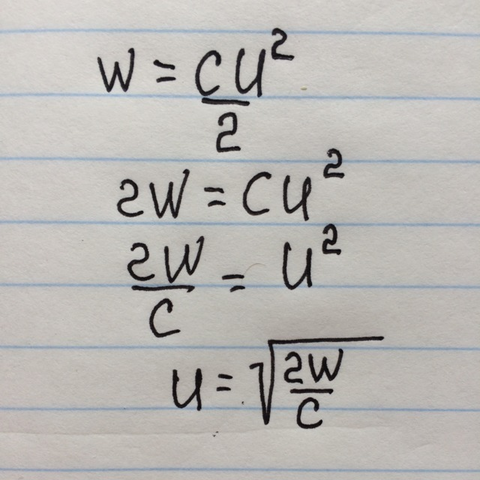 W = CU²/2
2W = CU²
2W/C = U²
U = √(2W/C)